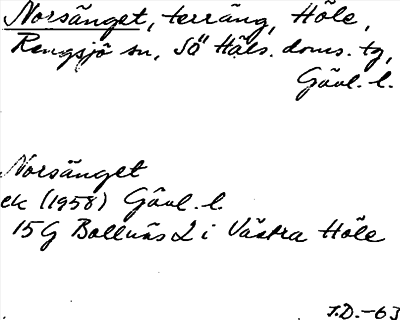 Norsänget, terräng, Höle,
Rengsjö sn, Sö Häls. doms. tg,
Gävl. l.
Norsänget
ek (1958) Gävl. l.
15G Bollnäs 2 i Västra Höle
J.D.-63